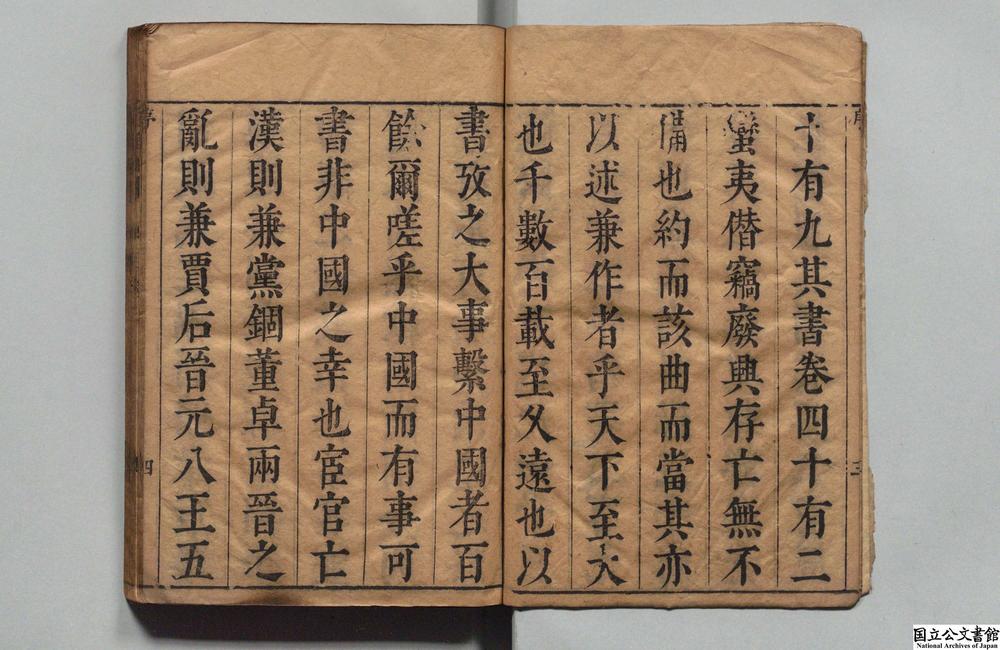 十有九其書卷四十有二
蠻夷僣竊廢興存亡無不
備也約而該曲而當其亦
以述兼作者乎天下至大
也千數百載至久遠也以
書攷之大事繫中國者百
餘爾嗟乎中國而有事可
書非中國之幸也宦官亡
漢則兼黨錮董卓兩晉之
亂則兼賈后晉元八王五
序
三
序
四
国立公文書館
National Archives of Japan